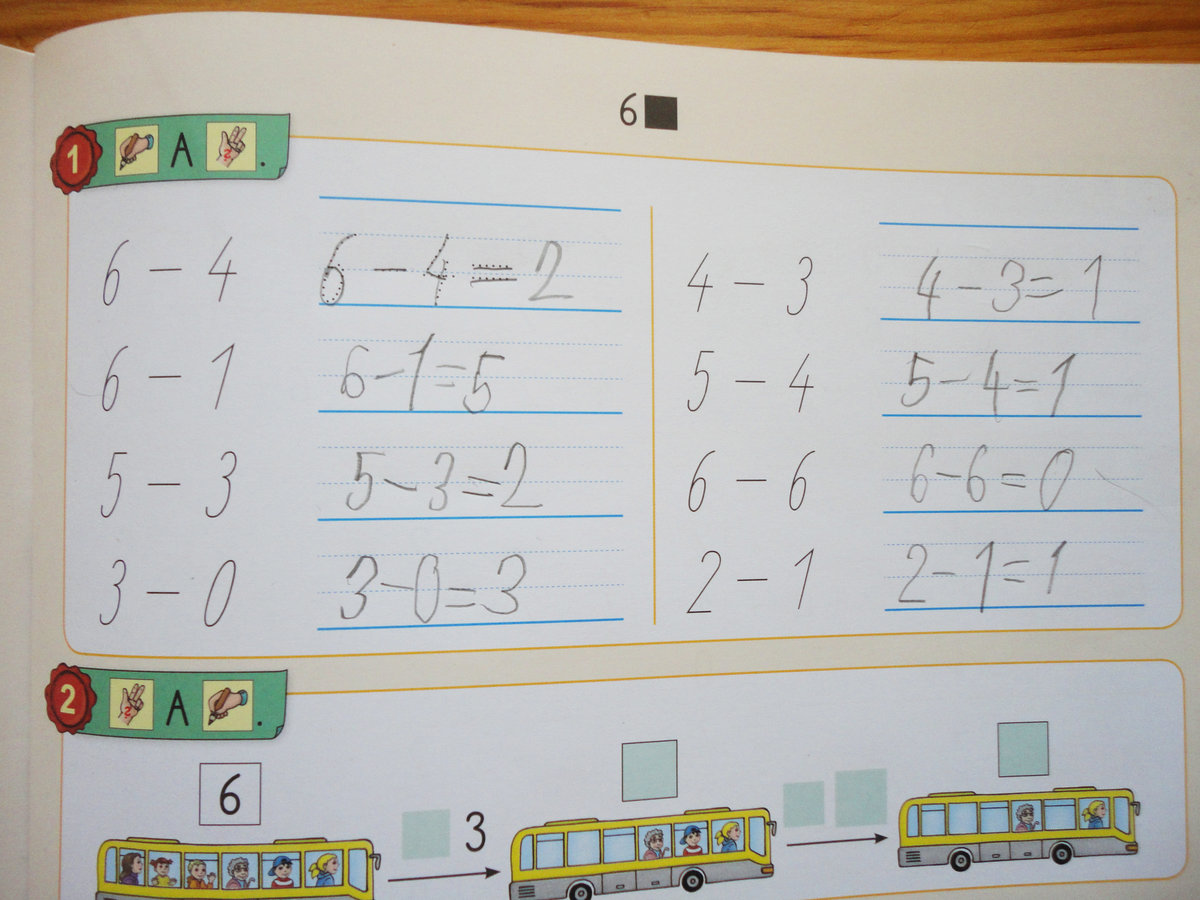 6
1 A .
6 − 4 6 − 4 = 2
6 − 1 6 − 1 = 5
5 − 3 5 − 3 = 2
3 − 0 3 − 0 = 3
4 − 3 4 − 3 = 1
5 − 4 5 − 4 = 1
6 − 6 6 − 6 = 0
2 − 1 2 − 1 = 1
2 A .
6
3